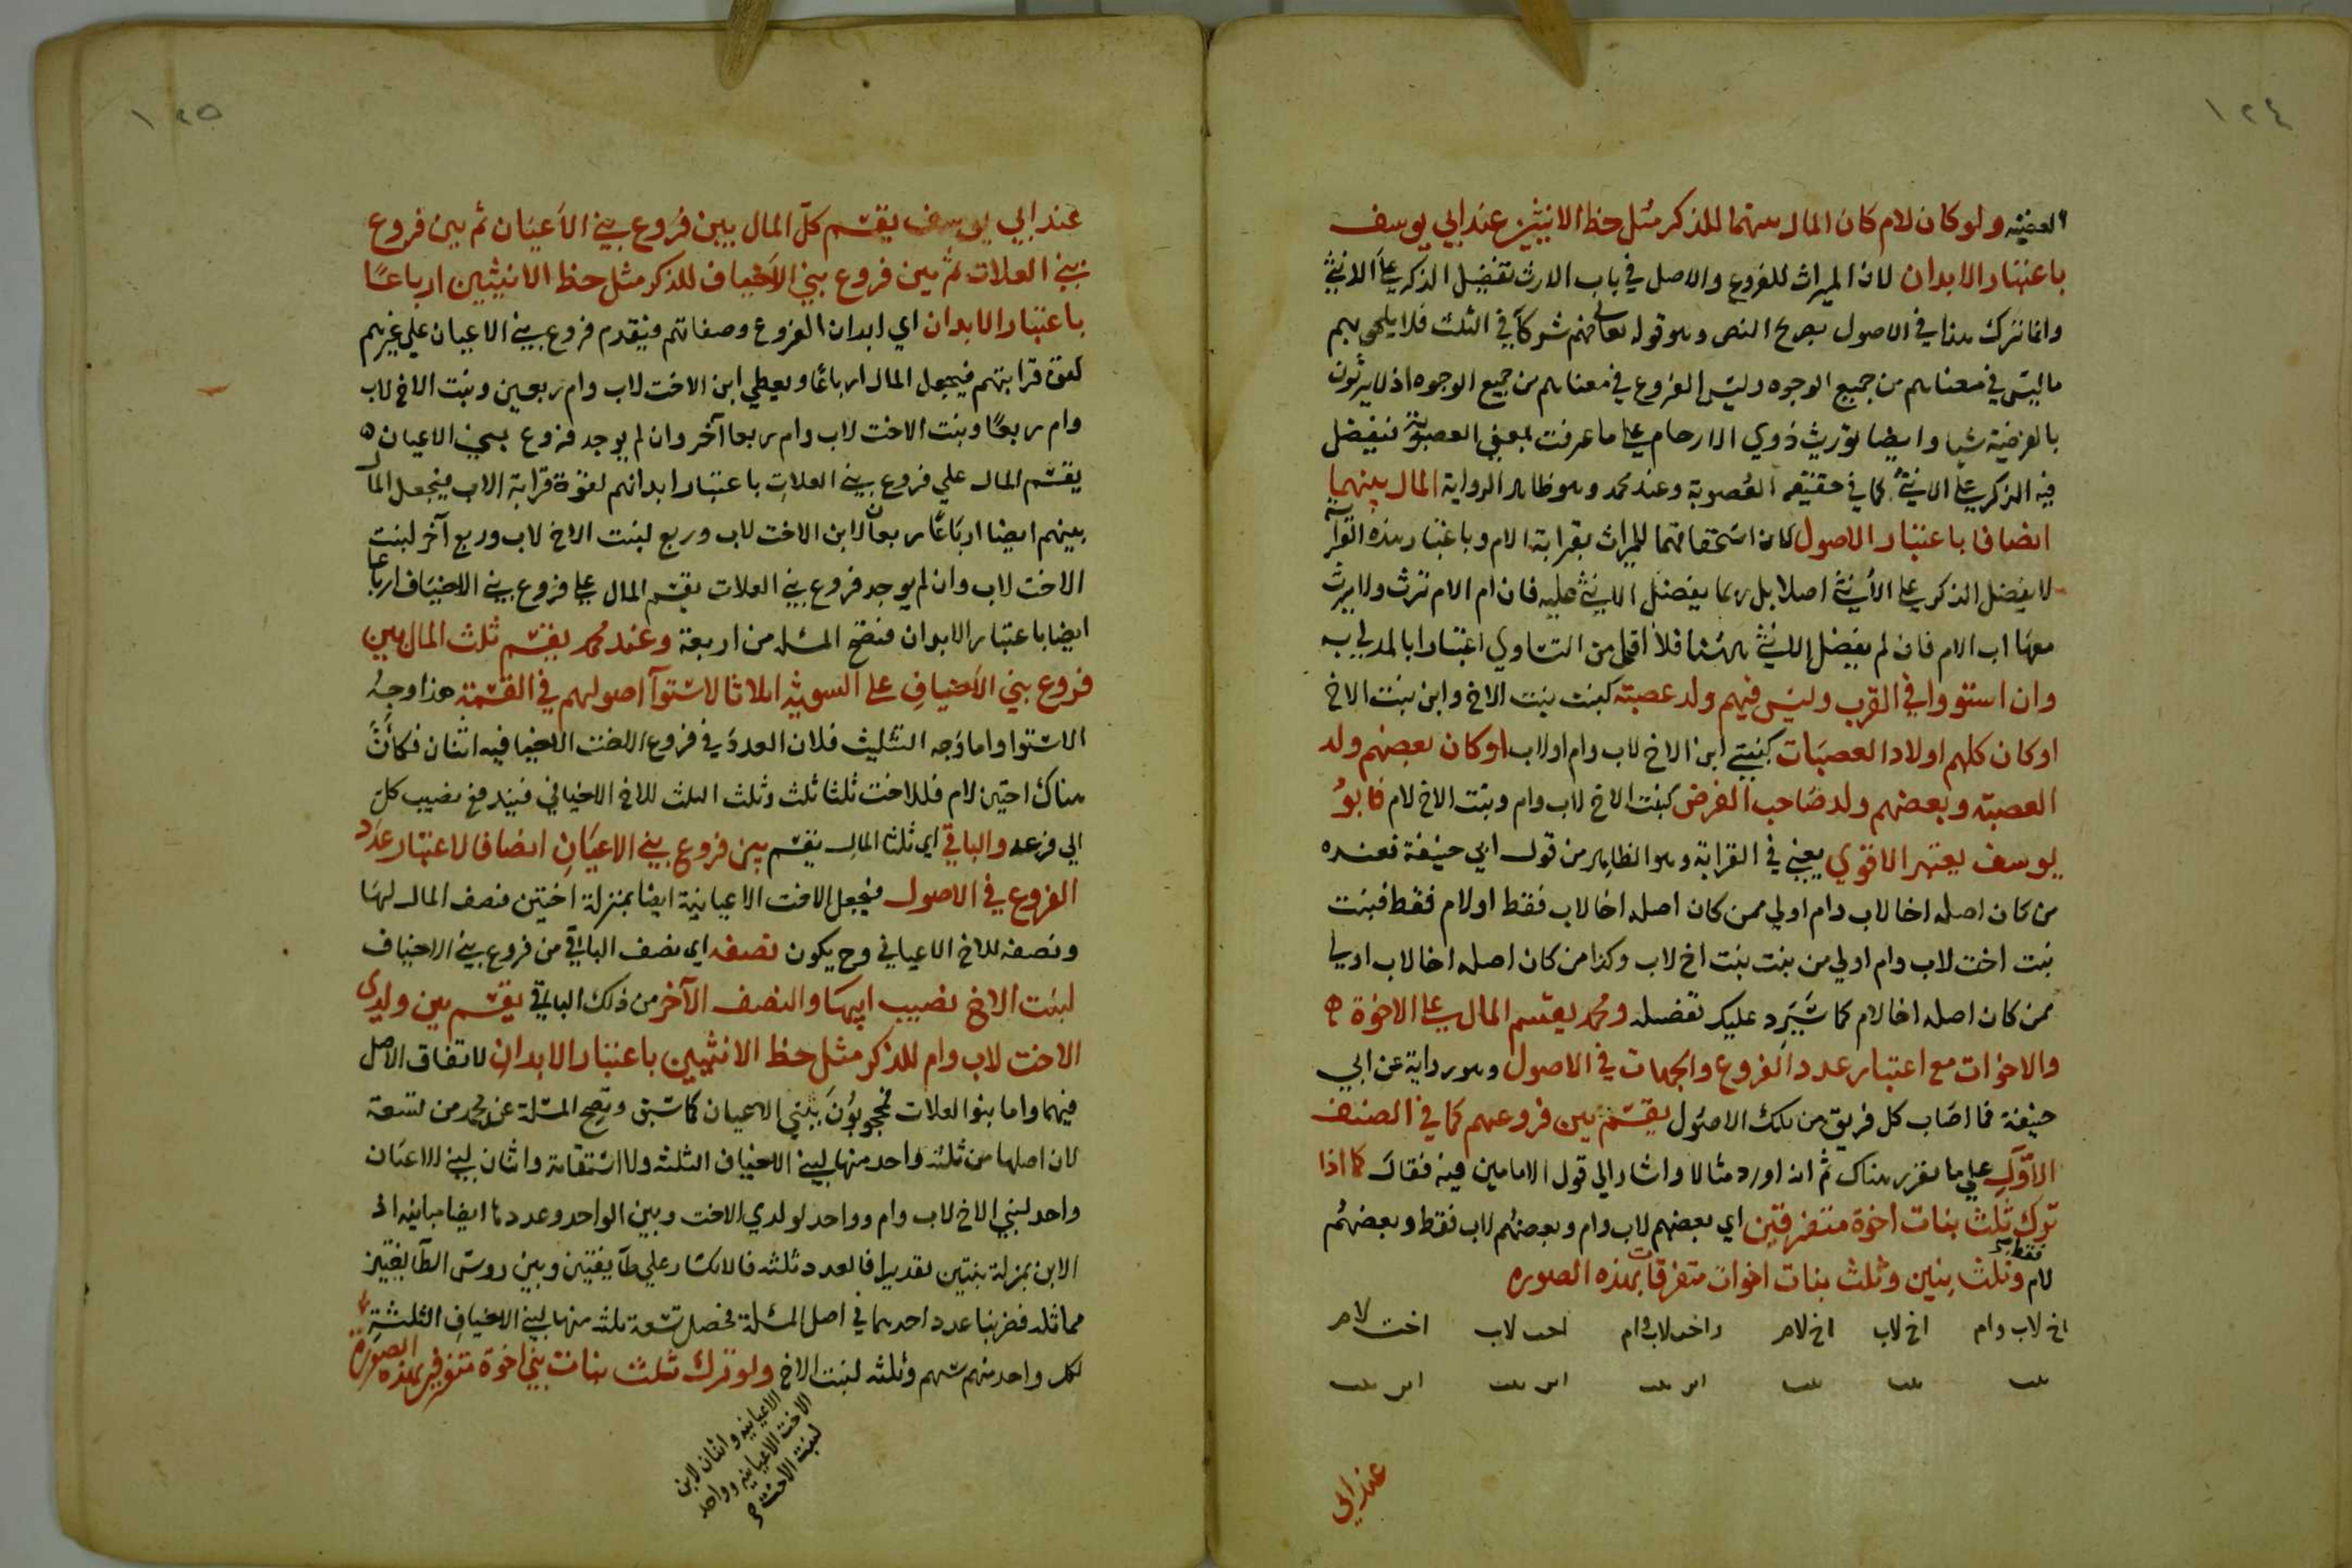 ١٢٤
العينيه ولو كان لام كان المال بينهما للذكر مثل حظ الانثيين عند ابي يوسف
باعتبار الابدان لان الميراث للفروع والاصل في باب الارث تفضيل الذكر على الانثى
وانما ترك هذا في الاصول بصريح النص وهو قوله تعالى فهم شركآ في الثلث فلا يلحق بهم
ما ليس في معناهم من جميع الوجوه وليس الفروع في معناهم من جميع الوجوه اذ لا يرثون
بالفرضية شيا وايضا توريث ذوي الارحام على ما عرفت بمعنى العصوبة فيفضل
فيه الذكر على الانثى كما في حقيقة العصوبة وعند محمد وهو ظاهر الرواية المال بينهما
انصافا باعتبار الاصول لان استحقاقهما للميراث بقرابة الام وباعتبار هذه القرابة
لا يفضل الذكر على الأنثى اصلا بل ربما يفضل الانثى عليه فان ام الام ترث ولا يرث
معها اب الام فان لم يفضل الانثى ههنا فلا اقل من التساوي اعتبارا بالمدلى به
وان استووا في القرب وليس فيهم ولد عصبته كبنت بنت الاخ وابن بنت الاخ
او كان كلهم اولاد العصبات كبنتي ابن الاخ لاب وام او لاب او كان بعضهم ولد
العصبته وبعضهم ولد صاحب الفرض كبنت الاخ لاب وام وبنت الاخ لام فابو
يوسف يعتبر الاقوي يعني في القرابة وهو الظاهر من قول ابي حنيفة فعنده
من كان اصله اخا لاب وام اولي ممن كان اصله اخا لاب فقط او لام فقط فبنت
بنت اخت لاب وام اولي من بنت بنت اخ لاب وكذا من كان اصله اخا لاب اولي
ممن كان اصله اخا لام كما سَيَرِد عليك تفصيله ومحمد يقسم المال على الاخوة
والاخوات مع اعتبار عدد الفروع والجهات في الاصول وهو رواية عن ابي
حنيفة فما اصاب كل فريق من تلك الاصول يقسم بين فروعهم كما في الصنف
الاوّل علي ما تقرر هناك ثم انه اورد مثالا واشار الي قول الامامين فيه فقال كما اذا
ترك ثلث بنات اخوة متفرقين اي بعضهم لاب وام وبعضهم لاب فقط وبعضهم
لام فقط وثلث بنين وثلث بنات اخوات متفرقات بهذه الصوره
اخ لاب وام اخ لاب اخ لام واخت لاب وام اخت لاب اخت لام
بنت بنت بنت ابن بنت ابن بنت ابن بنت
عند ابي
١٢٥
عند ابي يوسف يقسم كل المال بين فروع بني الأعيان ثم بين فروع
بني العلات ثم بين فروع بني الأخياف للذكر مثل حظ الانثيين ارباعًا
باعتبار الابدان اي ابدان الفروع وصفاتهم فيقدم فروع بني الاعيان علي غيرهم
لقوة قرابتهم فيجعل المال ارباعًا ويعطي ابن الاخت لاب وام ربعين وبنت الاخ لاب
وام ربعًا وبنت الاخت لاب وام ربعا آخر وان لم يوجد فروع بني الاعيان
يقسم المال علي فروع بني العلات باعتبار ابدانهم لقوة قرابة الاب فيجعل المال
بينهم ايضا ارباعًا ربعان لابن الاخت لاب وربع لبنت الاخ لاب وربع آخر لبنت
الاخت لاب وان لم يوجد فروع بني العلات يقسم المال على فروع بني الاخياف ارباعا
ايضا باعتبار الابدان فتصح المسئله من اربعة وعند محمد يقسم ثلث المال بين
فروع بني الأخيافِ على السوية اثلاثا لاستوآ اصولهم في القسمة هذا وجه
الاستوا واما وجه التثليث فلان العدد في فروع الاخت الاخيافيه اثنان فكأنَّ
هناك اختين لام فللاخت ثلثا ثلث وثلث الثلث للاخ الاخيافي فيندفع نصيب كل
الي فرعه والباقي اي ثلثا المال يقسم بين فروع بني الاعيانِ انصافا لاعتبار عدد
الفروع في الاصول فيجعل الاخت الاعيانية ايضا بمنزلة اختين فنصف المال لها
ونصفه للاخ الاعياني وح يكون نصفه اي نصف الباقي من فروع بني الاخياف
لبنت الاخ نصيب ابيها والنصف الآخر من ذلك الباقي يقسم بين ولدي
الاخت لاب وام للذكر مثل حظ الانثيين باعتبار الابدان لاتفاق الاصل
فيهما واما بنوا العلات فمحجوبُونَ ببني الاعيان كما سبق وتصح المسئلة عند محمد من تسعة
لان اصلها من ثلثه واحد منها لبني الاخياف الثلثه ولا استقامة واثنان لبني الاعيان
واحد لبني الاخ لاب وام وواحد لولدي الاخت وبين الواحد وعددها ايضا مباينه اذ
الابن بمنزلة بنتين تقديرا فالعدد ثلثه فالانكسار علي طآيفتين وبين رؤس الطآيفتين
مماثله فضربنا عدد احديهما في اصل المسئلة فحصل تسعة ثلثه منها لبني الاخيافِ الثلثةِ
لكل واحد منهم سهم وثلثه لبنت الاخ ولو ترك ثلث بنات بني اخوة متفرقين بهذه الصورة
الاعيانيه واثنان لابن
الاخت الاعيانيه وواحد
لبنت الاخت